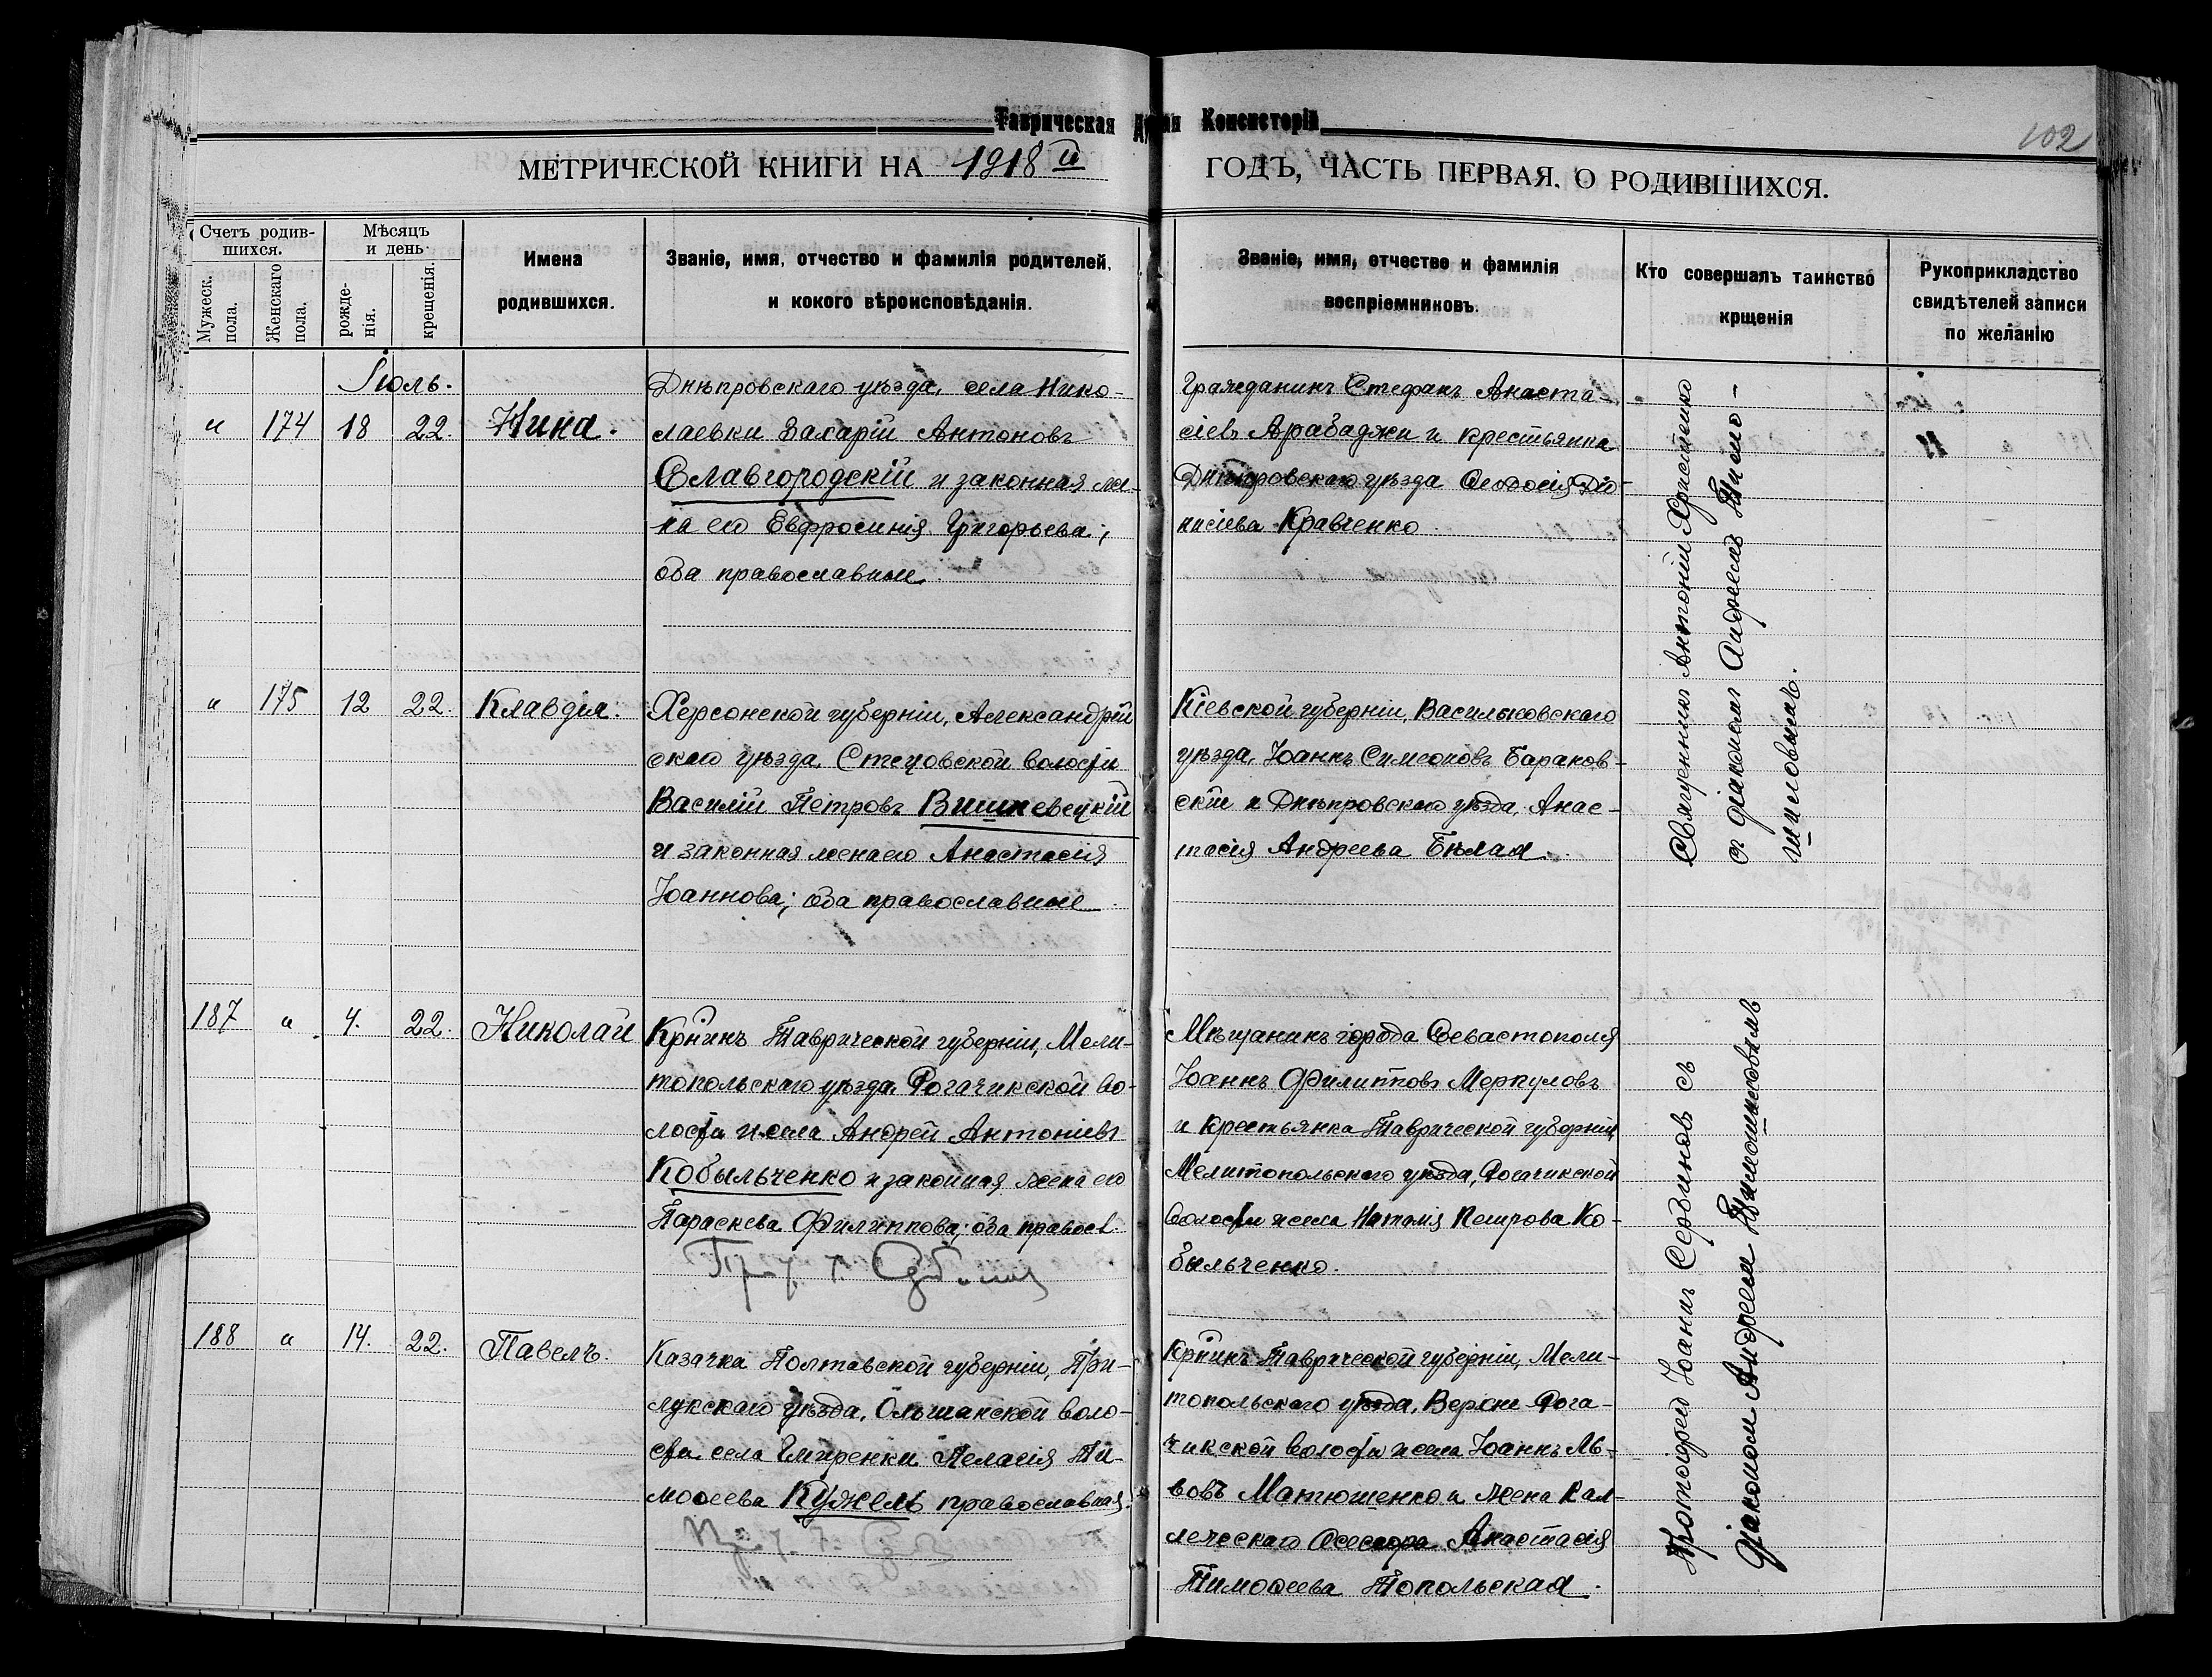 Таврическая Консисторія
102
МЕТРИЧЕСКОЙ КНИГИ НА 1918 й ГОДЪ, ЧАСТЬ ПЕРВАЯ, О РОДИВШИХСЯ.
Счетъ родив-
шихся.
Мужеск. пола.
Женскаго пола.
Мѣсяцъ
и день
рожде-
нія.
крещенія.
Имена
родившихся.
Званіе, имя, отчество и фамилія родителей,
и кокого вѣроисповѣданія.
Званіе, имя, отчество и фамилія
воспріемниковъ.
Кто совершалъ таинство
крщенія
Рукоприкладство
свидѣтелей записи
по желанію
Іюль.
" 174 18 22. Нина.
Днѣпровскаго уѣзда, села Нико-
лаевки Захарій Антоновъ
Славгородскій и законная же-
на его Евфросинія Григорьева;
оба православные.
Гражданинъ Стефанъ Анаста
сіевъ Арабаджи и крестьянка
Днѣпровскаго уѣзда Феодосія Діо-
нисіева Кравченко
Священникъ Антоній Христенко
съ діакономъ Андреемъ Тимо-
шиновымъ.
" 175 12 22. Клавдія.
Херсонской губерніи, Александрій
скаго уѣзда, Стецовской волости
Василій Петровъ Вишневецкій
и законная жена его Анастасія
Іоаннова; оба православные
Кіевской губерніи, Васильковскаго
уѣзда, Іоаннъ Симеоновъ Баранов-
скій и Днѣпровскаго уѣзда, Анас-
тасія Андреева Бѣлая.
187 " 4. 22. Николай
Крнинъ Таврической губерніи, Мели-
топольскаго уѣзда Рогачикской во-
лости и села Андрей Антоніевъ
Кобыльченко и законная жена его
Параскева Филиппова; оба правосл.
Мѣщанинъ города Севастополя
Іоаннъ Филипповъ Меркуловъ
и крестьянка Таврической губерніи,
Мелитопольскаго уѣзда, Рогачикской
волости и села Наталія Петрова Ко-
быльченко.
Протоіерей Іоаннъ Сербиновъ съ
діакономъ Андреемъ Тимошиновымъ
188 " 14. 22. Павелъ.
Казачка Полтавской губерніи, При-
лукскаго уѣзда, Ольшанской воло-
сти села Гмиренки Пелагія Ти-
моѳеева Кужель православная.
Крнинъ Таврической губерніи, Мели-
топольскаго уѣзда, Верхне-Рога-
чикской волости и села Іоаннъ Ль-
вовъ Матюшенко и жена Кал-
лежскаго Асессора Анастасія
Тимоѳеева Топольская.